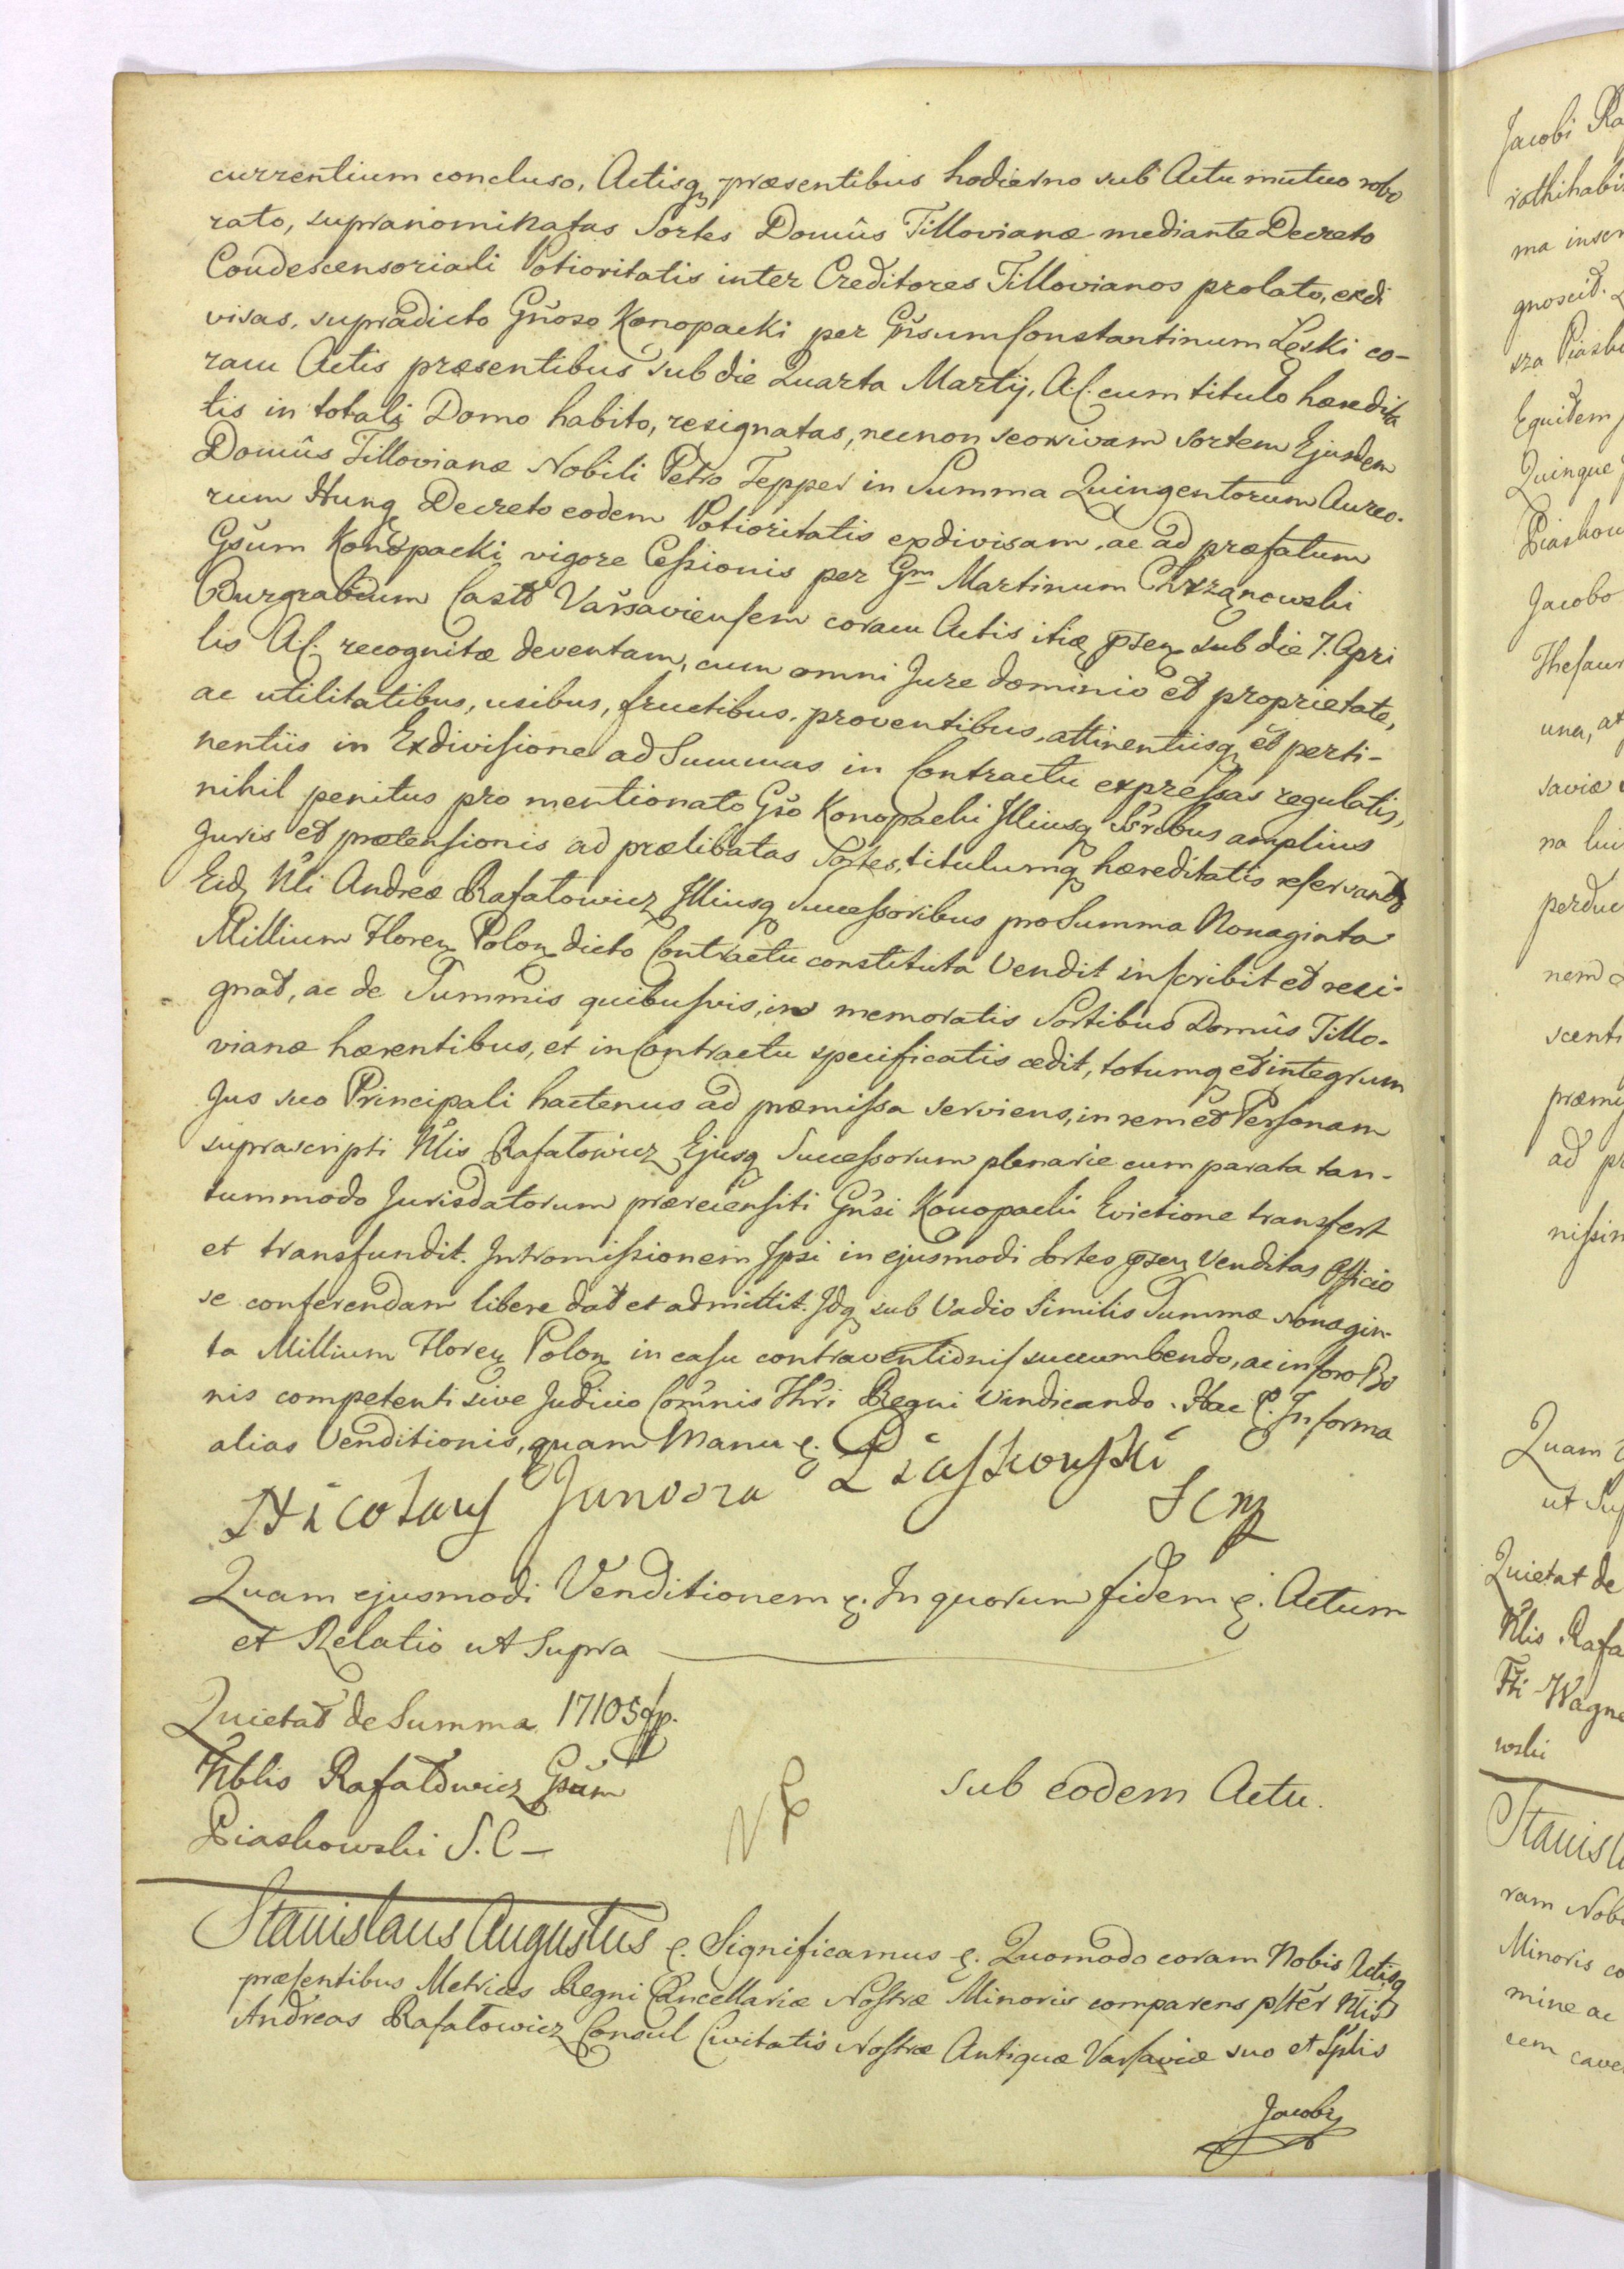 currentium concluso, Actisq præsentibus hodierno sub Actu mutuo robo
rato, supranominatas Sortes Domûs Tillovianæ mediante Decreto
Condescensoriali Potioritatis inter Creditores Tillovianos prolato, exdi
visas, supradicto Gñoso Konopacki per Gñsum Constantinum Leski co-
ram Actis præsentibus sub die Quarta Martij, A.C. cum titulo hæredita
tis in totali Domo habito, resignatas, necnon seorsivam sortem Ejusdem
Domûs Tillovianæ Nobili Petro Tepper in Summa Quingentorum Aureo-
rum Hung Decreto eodem Potioritatis exdivisam, ac ad præfatum
Gsum Konopacki vigore Cessionis per Gm Martinum Chrzanowski
Burgrabium Castr Varsaviensem coram Actis itiq psen sub die 7. Apri
lis A.C. recognitæ deventam, cum omni Jure dominio et proprietate,
ac utilitatibus, usibus, fructibus, proventibus, attinentiisq et perti-
nentiis in Exdivisione ad Summas in Contractu expressas regulatis,
nihil penitus pro mentionato Gso Konopacki Illiusq Ssribus amplius
Juris et prætensionis ad prælibatas Sortes, titulumq hæreditatis reservando
Eid Nli Andreæ Rafałowicz Illiusq Successoribus pro Summa Nonaginta
Millium Floren Polon dicto Contractu constituta Vendit inscribit et resi-
gnat, ac de Summis quibusvis, in memoratis Sortibus Domûs Tillo-
vianæ hærentibus, et in Contractu specificatis cedit, totumq et integrum
Jus suo Principali hactenus ad præmissa serviens, in rem et Personam
suprascripti Nlis Rafałowicz Ejusq Successorum plenarie cum parata tan-
tummodo Jurisdatorum præcensiti Gnsi Konopacki Evictione transfert
et transfundit. Intromissionem Ipsi in ejusmodi Sortes psen Venditas Officio
se conferendam libere dat et admittit. Idq sub Vadio similis Summæ Nonagin-
ta Millium Floren Polon in casu contraventionis succumbendo, ac in foro Bo
nis competenti sive Judicio Comnis Thri Regni Vindicando. Hac &. In forma
alias Venditionis, quam Manu &.
Nicolaus Junosza Piaskowski
SCmp
Quam ejusmodi Venditionem &. In quorum fidem &. Actum
et Relatio ut Supra
Quietat de Summa 17105 fp.
Nblis Rafałowicz Gsum
Piaskowski S.C -
sub eodem Actu.
Stanislaus Augustus &. Significamus &. Quomodo coram Nobis Actisq
præsentibus Metrices Regni Cancellariæ Nostræ Minoris comparens psltěr Nlis
Andreas Rafałowicz Consul Civitatis Nostræ Antiquæ Varsaviæ suo et Splis
Jacobi
Jacobi Ra
rathihabi
ma inser
gnoscit.
sza Piasko
Equidem
Quinque
Piaskow
Jacobo
Thesaur
una, at
saviæ
na lui
perduc
nem
scenti
præmi
ad pr
nissim
Quam
ut Sup
Quietat de
Nlis Rafa
Fri Wagne
wski
Stanisl
ram Nobi
Minoris co
mine ac
cem cave